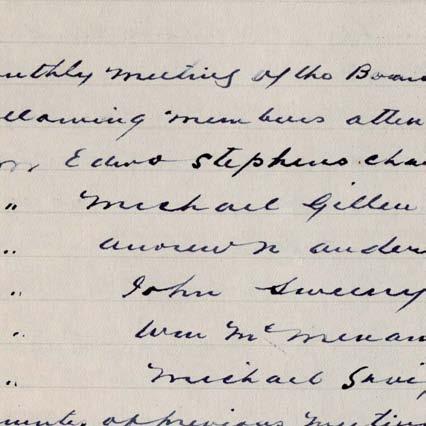 onthly meeting of the Boar
ollowing members atten
Edwd Stephens cha
" Michael Gillen
" Andrew N Ander
" John Sweeny
" Wm McMenam
" Michael
minutes of previous meetin